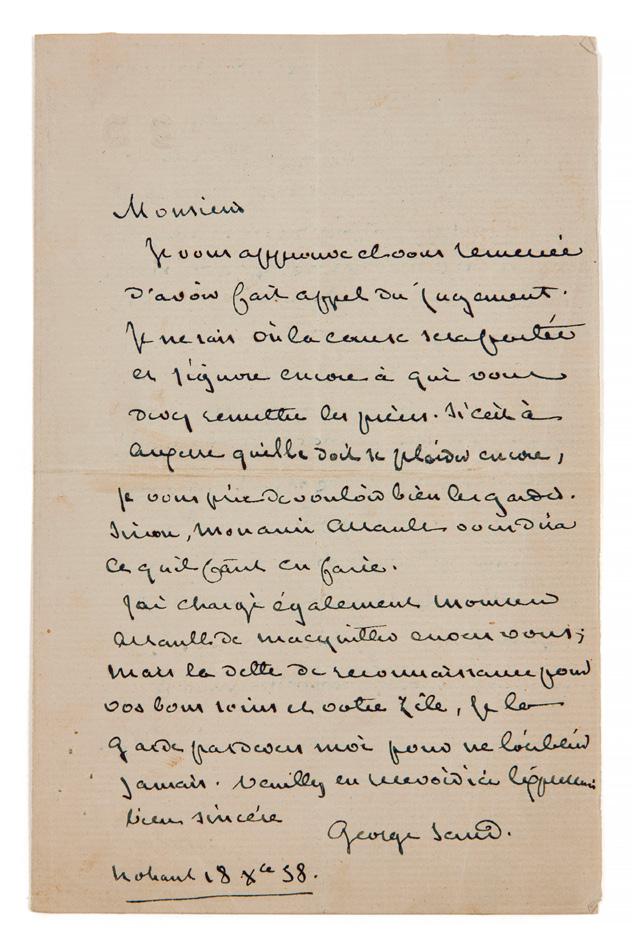 Monsieur
Je vous approuve et vous remercie
d'avoir fait appel du jugement.
Je ne sais où la cause sera portée
et j'ignore encore à qui vous
devez remettre les pièces. Si c'est à
Angers qu'elle doit se plaider encore,
je vous prie de vouloir bien les garder.
Sinon, mon ami vous dira
ce qu'il faut en faire.
J'ai chargé également Monsieur
de m'acquitter envers vous;
mais la dette de reconnaissance pour
vos bons soins et votre zèle, je la
garde pardevers moi pour ne l'oublier
jamais. Veuillez en recevoir ici l'expression
bien sincère
George Sand.
Nohant 18 Xbre 58.